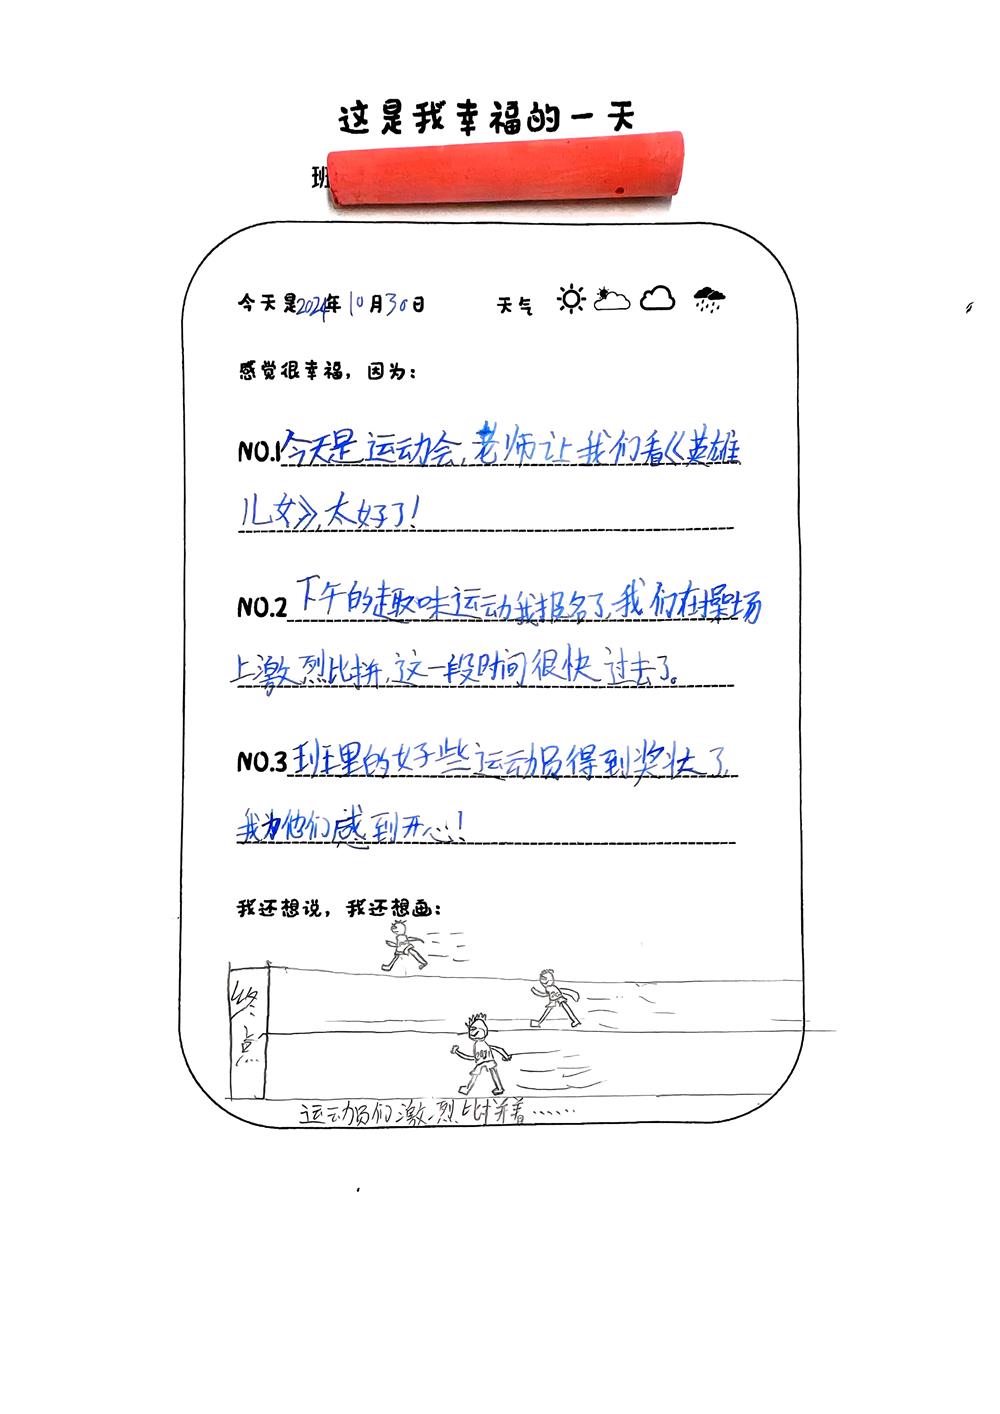 这是我幸福的一天
班
今天是2024年10月30日 天气
感觉很幸福，因为：
NO.1今天是运动会，老师让我们看《英雄
儿女》，太好了！
NO.2下午的趣味运动我报名了，我们在操场
上激烈比拼，这一段时间很快过去了。
NO.3班里的好些运动员得到奖状了，
我为他们感到开心！
我还想说，我还想画：
终点
运动员们激烈比拼着……